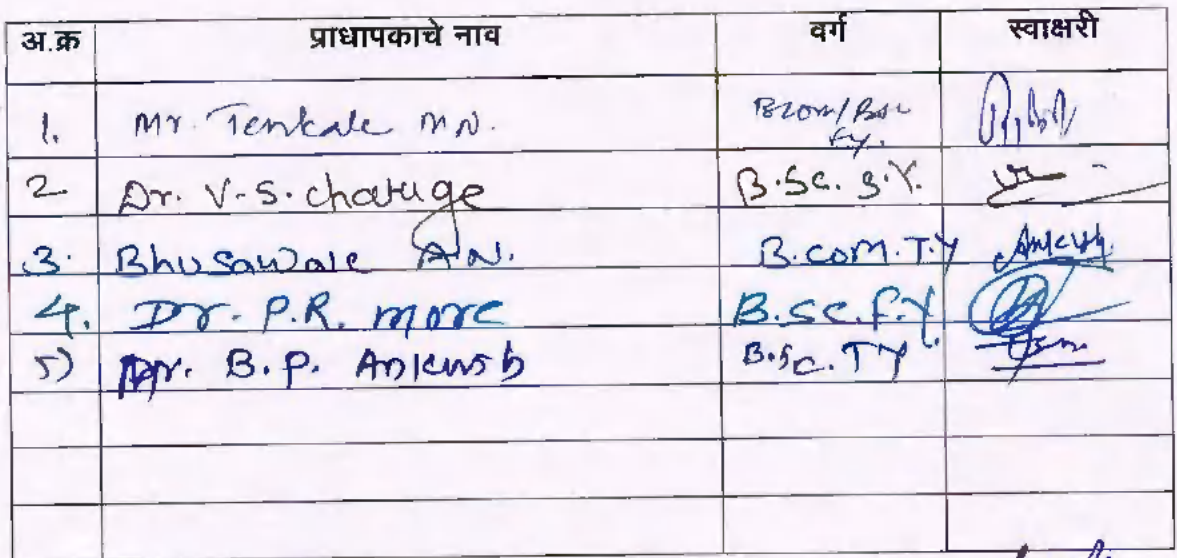 अ.क्र प्राधापकाचे नाव वर्ग स्वाक्षरी
1. Mr. Tenkale M.N. Bcom/Bsc
F.Y.
2 Dr. V.S. charuge B.Sc. S.Y.
3. Bhusawale A.N. B.com. T.Y Ankush
4. Dr. P.R. more B.SC.F.Y.
5) Dr. B.P. Ankush B.Sc. TY